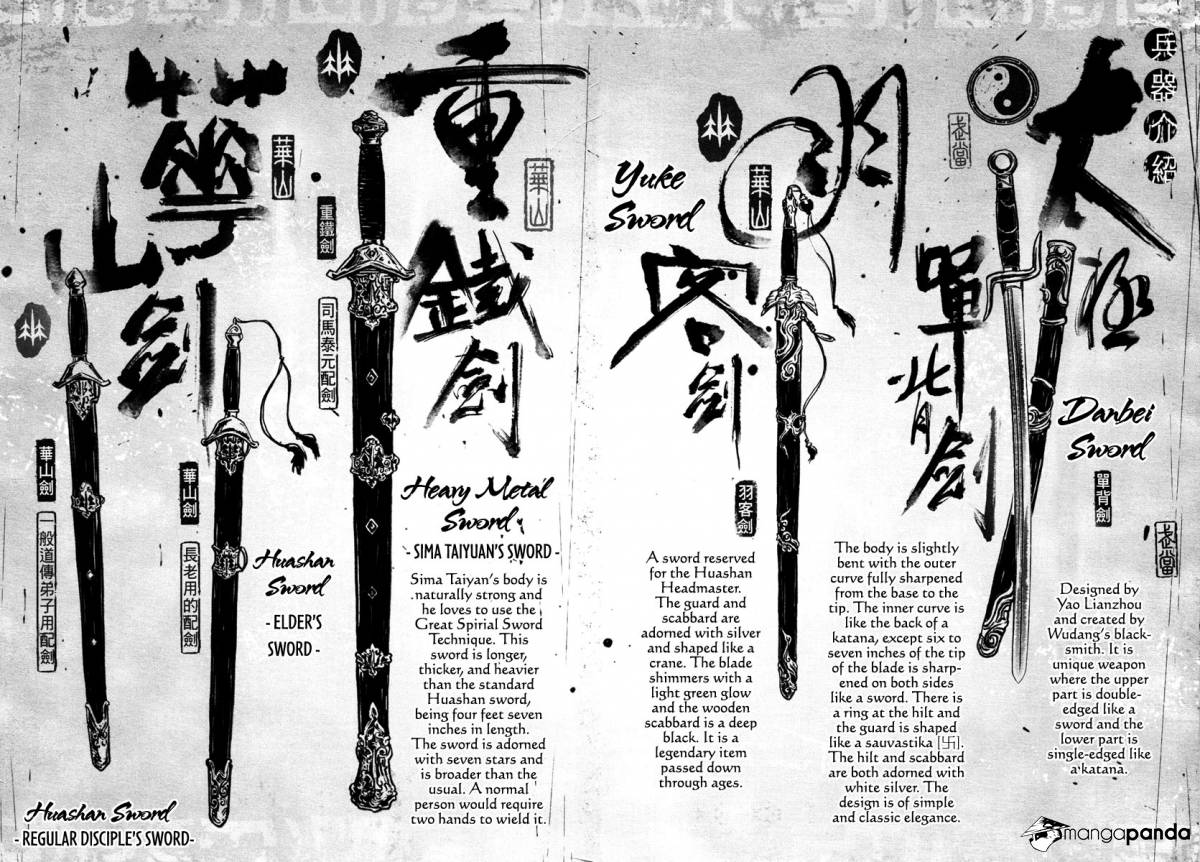 兵器介紹
太極
單背劍
武當
Danbei
Sword
單背劍
武當
Designed by
Yao Lianzhou
and created by
Wudang's black-
smith. It is
unique weapon
where the upper
part is double-
edged like a
sword and the
lower part is
single-edged like
a katana.
The body is slightly
bent with the outer
curve fully sharpened
from the base to the
tip. The inner curve is
like the back of a
katana, except six to
seven inches of the tip
of the blade is sharp-
ened on both sides
like a sword. There is
a ring at the hilt and
the guard is shaped
like a sauvastika [卐].
The hilt and scabbard
are both adorned with
white silver. The
design is of simple
and classic elegance.
羽客劍
華山
Yuke
Sword
羽客劍
A sword reserved
for the Huashan
Headmaster.
The guard and
scabbard are
adorned with silver
and shaped like a
crane. The blade
shimmers with a
light green glow
and the wooden
scabbard is a deep
black. It is a
legendary item
passed down
through ages.
重鐵劍
華山
重鐵劍
司馬泰元配劍
Heavy Metal
Sword
- SIMA TAIYUAN'S SWORD -
Sima Taiyan's body is
naturally strong and
he loves to use the
Great Spirial Sword
Technique. This
sword is longer,
thicker, and heavier
than the standard
Huashan sword,
being four feet seven
inches in length.
The sword is adorned
with seven stars and
is broader than the
usual. A normal
person would require
two hands to wield it.
華山劍
華山
華山劍
長老用的配劍
Huashan
Sword
- ELDER'S
SWORD -
華山劍
一般道傳弟子用配劍
Huashan Sword
- REGULAR DISCIPLE'S SWORD-
mangapanda